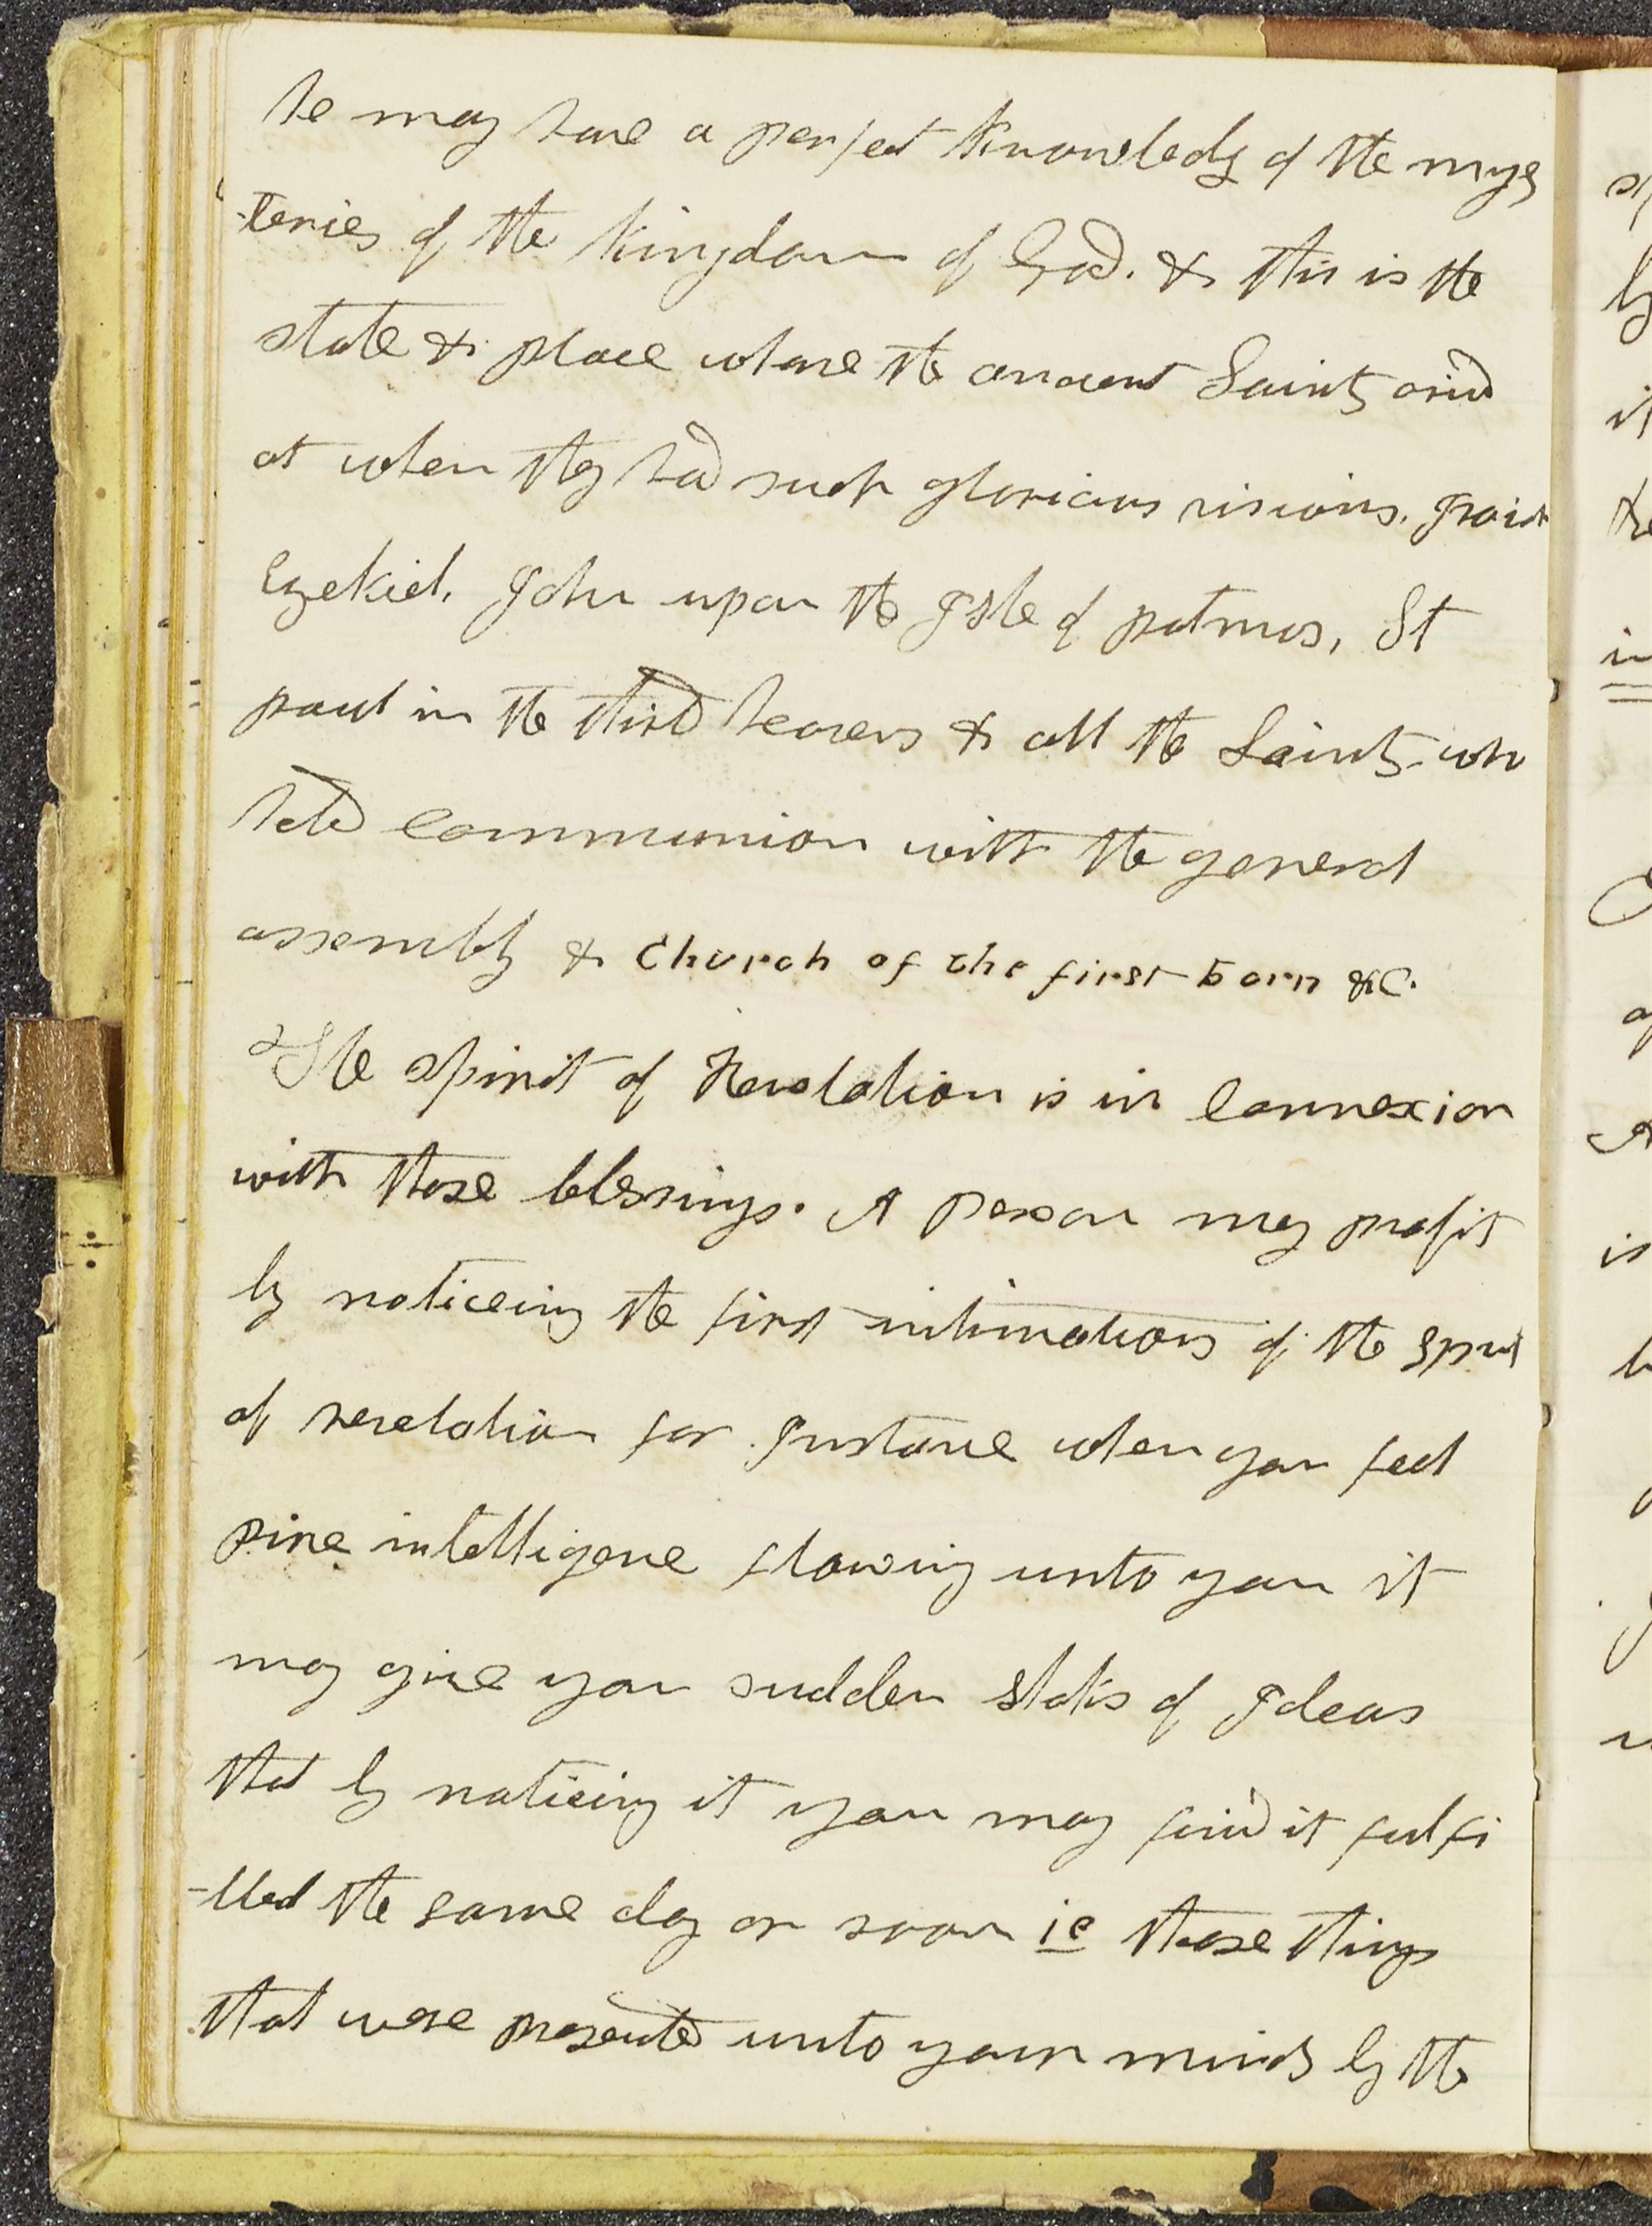 he may have a perfect knowledg of the mys
-teries of the kingdom of God. & this is the
state & place whare the ancient Saints arivd
at when they had such glorious visions. Isaiah
Ezekiel. John upon the Isle of patmos, St
paul in the third heavens & all the Saints who
held communion with the general
assembly & Church of the first born &c.
The Spirit of Revelation is in Connexion
with those blessings. A person may profit
by noticeing the first intimations of the Spirit
of revelation for Instance when you feel
pure intelligence flowing unto you it
may give you sudden stroks of Ideas
that by noticeing it you may find it fulfi
-lled the same day or soon ie those things
that were presented unto your minds by the